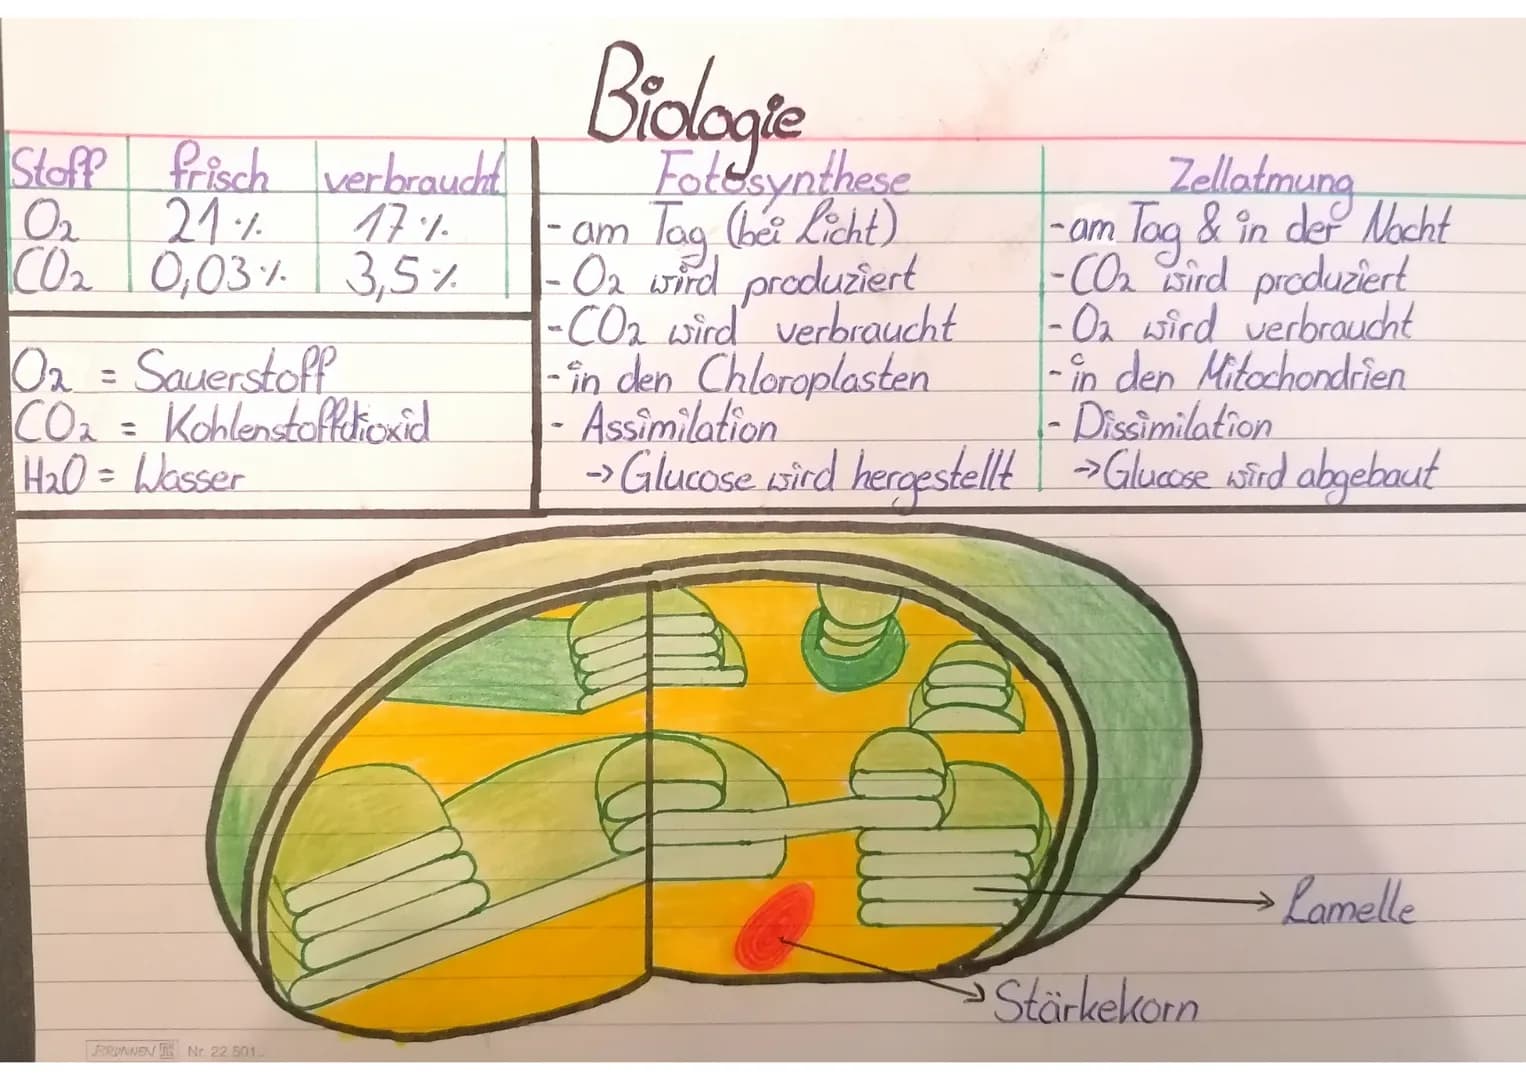 Biologie
Stoff frisch verbraucht
O2 21% 17%
CO2 0,03% 3,5%
O2 = Sauerstoff
CO2 = Kohlenstoffdioxid
H2O = Wasser
Fotosynthese
- am Tag (bei Licht)
- O2 wird produziert
- CO2 wird verbraucht
- in den Chloroplasten
- Assimilation
-> Glucose wird hergestellt
Zellatmung
- am Tag & in der Nacht
- CO2 wird produziert
- O2 wird verbraucht
- in den Mitochondrien
- Dissimilation
-> Glucose wird abgebaut
Lamelle
Stärkekorn
BRUNNEN Nr. 22 501